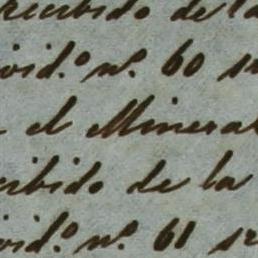 recibido de la
ivid.º n.º 60 su
el Mineral
cibido de la
ivid.º n.º 61 su